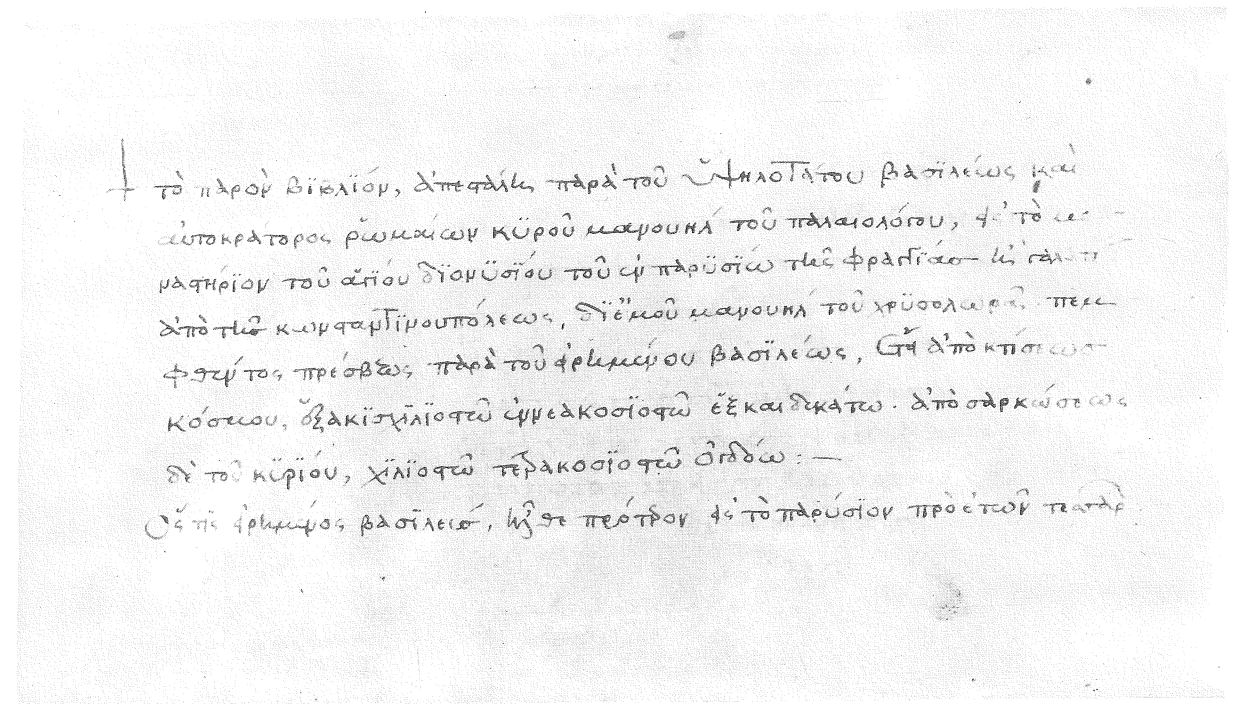 † τὸ παρὸν βϊβλϊόν, ἀπεστάλη παρὰ τοῦ ὑψηλοτάτου βασϊλέως καὶ
αὐτοκράτορος ῥωμαίων κϋροῦ μανουὴλ τοῦ παλαιολόγου, εἰς τὸ μο-
ναστήρϊον τοῦ ἁγϊου δϊονϋσϊου τοῦ ἐν παρϋσϊω τῆς φραγγϊας
ἀπὸ τῆς κωνσταντϊνουπόλεως, δϊ ἐμοῦ μανουὴλ τοῦ χρϋσολωρᾶ πεμ-
φθέντος πρέσβεως παρὰ τοῦ εἰρημένου βασϊλέως, ἔτει ἀπὸ κτίσεως
κόσμου, ἑξακϊσχϊλϊοστῶ ἐννεακοσϊοστῶ ἑξκαιδεκάτω. ἀπὸ σαρκώσεως
δὲ τοῦ κϋρϊου, χϊλϊοστῶ τετρακοσϊοστῶ ὀγδόω:—
ὅς τις εἰρημένος βασϊλεὺς, ἦλθε πρότερον εἰς τὸ παρύσϊον πρὸ ἐτῶν τεσσάρ